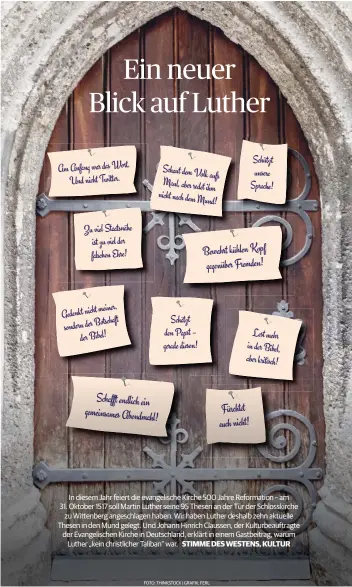 Ein neuer
Blick auf Luther
Am Anfang war das Wort.
Und nicht Twitter.
Schaut dem Volk aufs
Maul, aber redet ihm
nicht nach dem Mund!
Schützt
unsere
Sprache!
Zu viel Staatsnähe
ist zu viel der
falschen Ehre!
Bewahrt kühlen Kopf
gegenüber Fremden!
Gedenkt nicht meiner,
sondern der Botschaft
der Bibel!
Schützt
den Papst –
gerade diesen!
Lest mehr
in der Bibel,
aber kritisch!
Schafft endlich ein
gemeinsames Abendmahl!
Fürchtet
euch nicht!
In diesem Jahr feiert die evangelische Kirche 500 Jahre Reformation – am
31. Oktober 1517 soll Martin Luther seine 95 Thesen an der Tür der Schlosskirche
zu Wittenberg angeschlagen haben. Wir haben Luther deshalb zehn aktuelle
Thesen in den Mund gelegt. Und Johann Hinrich Claussen, der Kulturbeauftragte
der Evangelischen Kirche in Deutschland, erklärt in einem Gastbeitrag, warum
Luther „kein christlicher Taliban“ war. STIMME DES WESTENS, KULTUR
FOTO: THINKSTOCK | GRAFIK: FERL